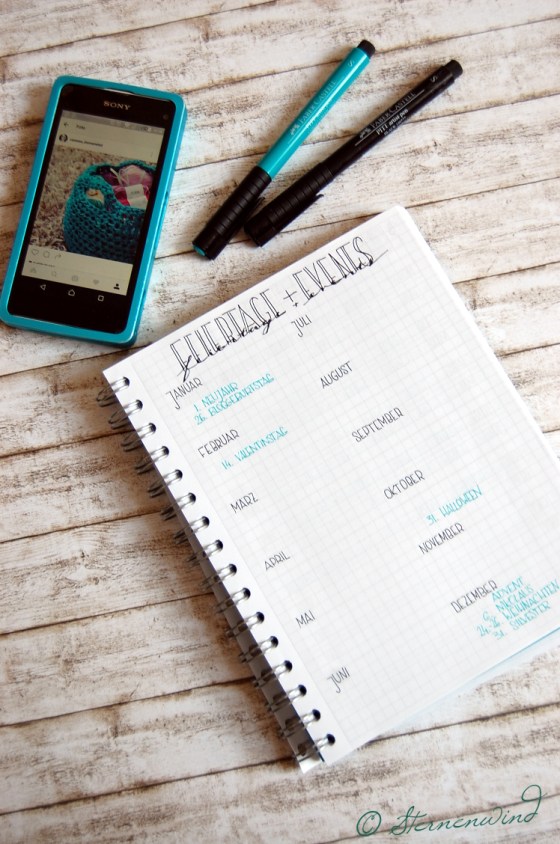 SONY
FABER-CASTELL
FABER-CASTELL
PITT artist pen
FEIERTAGE + EVENTS
JANUAR
1. NEUJAHR
26. BLOGGEBURTSTAG
FEBRUAR
14. VALENTINSTAG
MÄRZ
APRIL
MAI
JUNI
JULI
AUGUST
SEPTEMBER
OKTOBER
31. HALLOWEEN
NOVEMBER
DEZEMBER
ADVENT
6. NIKOLAUS
24.-26. WEIHNACHTEN
31. SILVESTER
© Sternenwind